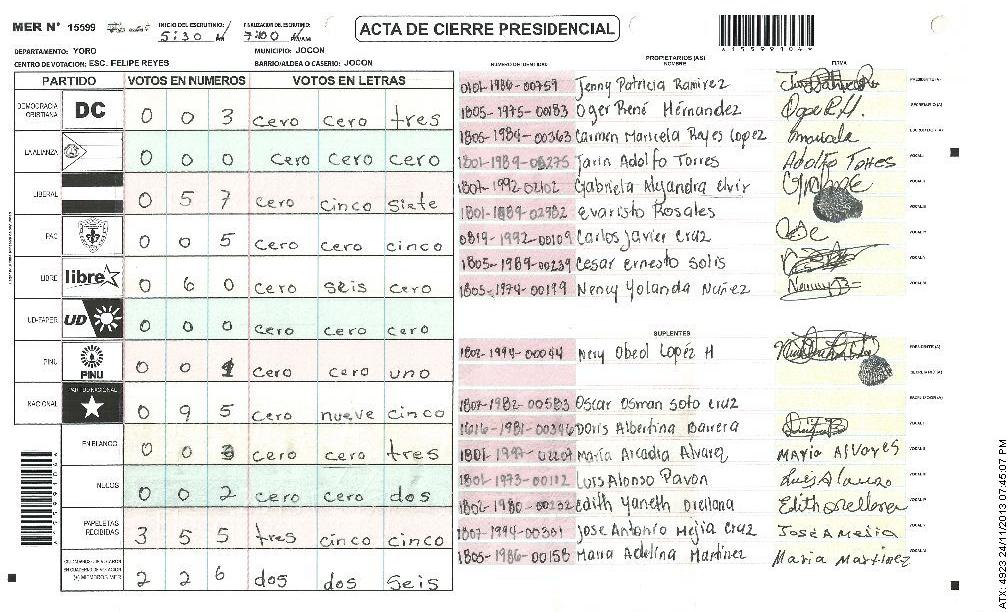 MER N° 15599
INICIO DEL ESCRUTINIO: 5:30
FINALIZACION DEL ESCRUTINIO: 7:00
ACTA DE CIERRE PRESIDENCIAL
DEPARTAMENTO: YORO MUNICIPIO: JOCON
CENTRO DE VOTACION: ESC. FELIPE REYES BARRIO/ALDEA O CASERIO: JOCON
PARTIDO VOTOS EN NUMEROS VOTOS EN LETRAS
DEMOCRACIA CRISTIANA DC 0 0 3 cero cero tres
LA ALIANZA 0 0 0 cero cero cero
LIBERAL 0 5 7 cero cinco siete
PAC 0 0 5 cero cero cinco
LIBRE libre 0 6 0 cero seis cero
UD-FAPER UD 0 0 0 cero cero cero
PINU PINU 0 0 1 cero cero uno
NACIONAL PARTIDO NACIONAL 0 9 5 cero nueve cinco
EN BLANCO 0 0 3 cero cero tres
NULOS 0 0 2 cero cero dos
PAPELETAS RECIBIDAS 3 5 5 tres cinco cinco
2 2 6 dos dos seis
NUMERO DE IDENTIDAD PROPIETARIOS (AS) NOMBRE FIRMA
0101-1986-00759 Jenny Patricia Ramirez
1805-1975-00183 Oger René Hérnandez
1805-1984-00363 Carmen Maricela Reyes Lopez
1801-1989-00275 Jarin Adolfo Torres Adolfo Torres
1807-1992-02102 Gabriela Alejandra elvir
Evaristo Rosales
0819-1992-00109 Carlos Javier Cruz
1805-1989-00239 Cesar ernesto Solis
1805-1974-00199 Nency Yolanda Nuñez
SUPLENTES
1807-1994-00044 Nery Obeol Lopéz H
1807-1982-00583 Oscar Osman Soto Cruz
1616-1981-00346 Doris Albertina Barrera
Maria Arcadia Alvarez Maria Alvares
1801-1973-00112 Luis Alonso Pavon Luis Alonzo
1802-1980-00232 Edith Yaneth orellana Edith orellana
1807-1994-00301 Jose Antonio Mejia Cruz Jose A Mejia
1805-1986-00158 Maria Adelina Martinez Maria Martinez
A15599104
ATX: 4923 24/11/2013 07:45:07 PM